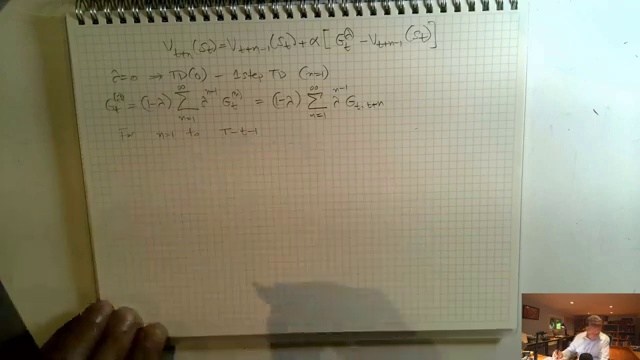 V_{t+n}(S_t) = V_{t+n-1}(S_t) + α[G_t^{(λ)} - V_{t+n-1}(S_t)]
λ=0 ⟹ TD(0) - 1step TD (n=1)
G_t^{(λ)} = (1-λ) ∑_{n=1}^{∞} λ^{n-1} G_t^{(n)} = (1-λ) ∑_{n=1}^{∞} λ^{n-1} G_{t,t+n}
For n=1 to T-t-1